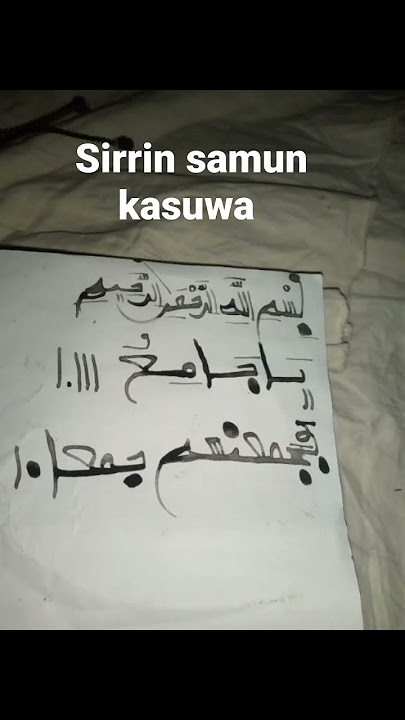 Sirrin samun
kasuwa
بسم الله الرحمن الرحيم
ياجامع ١٠١١١
فجمعنهم جمعا ١٠